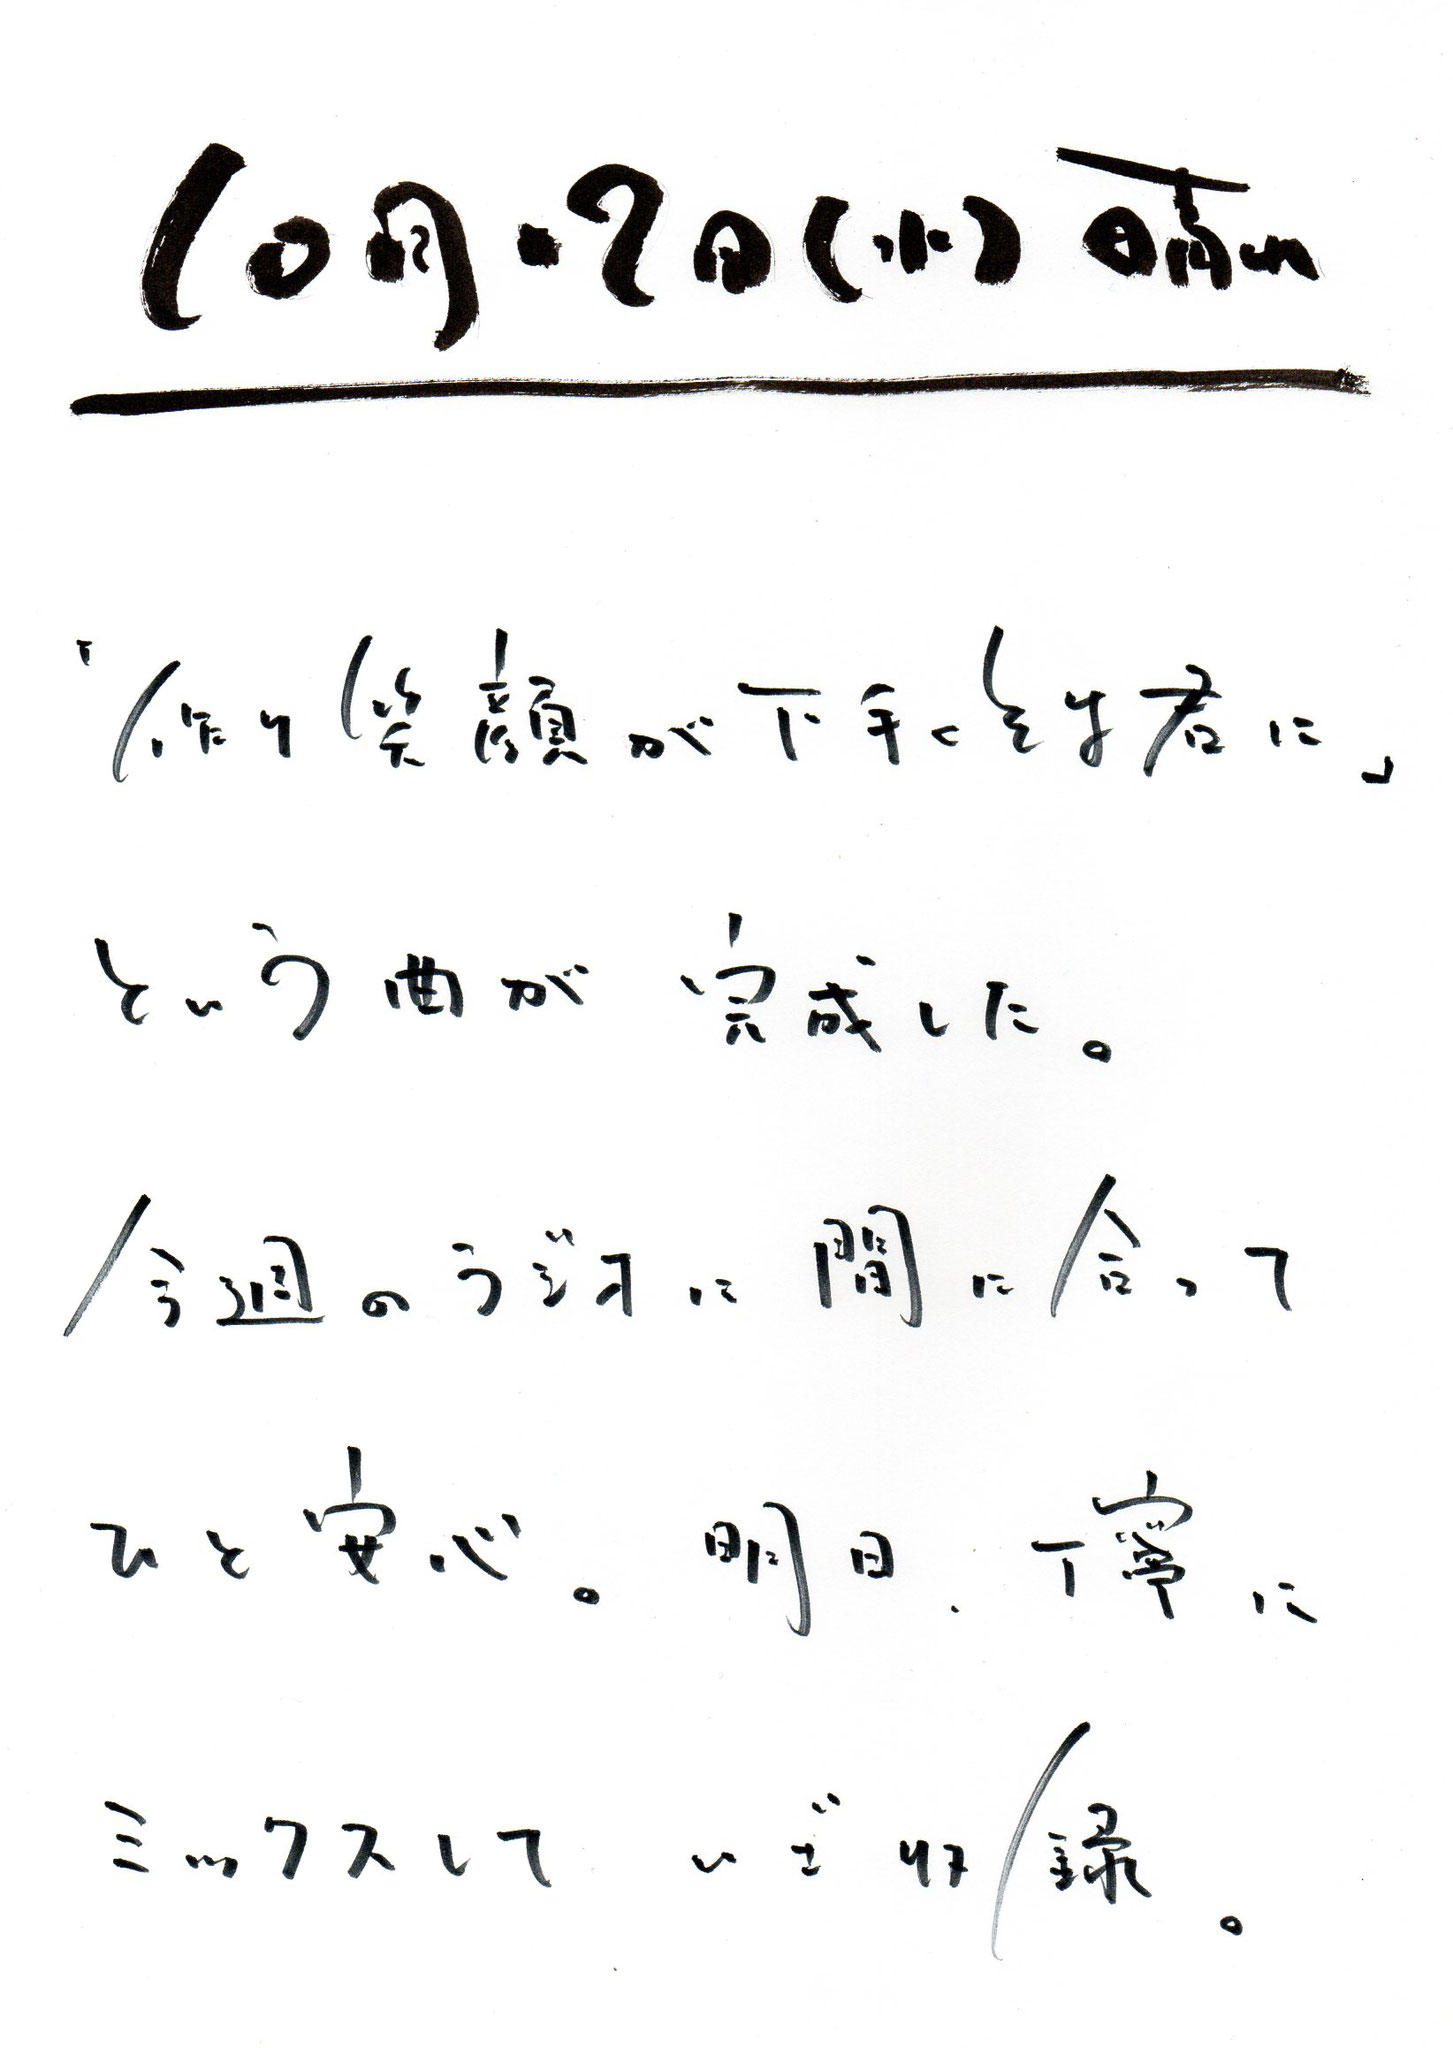 10月・2日(水) 晴れ
「作り笑顔が下手くそな君に」
という曲が 完成した。
今週のラジオに 間に合って
ひと安心。 明日、丁寧に
ミックスして いざ収録。